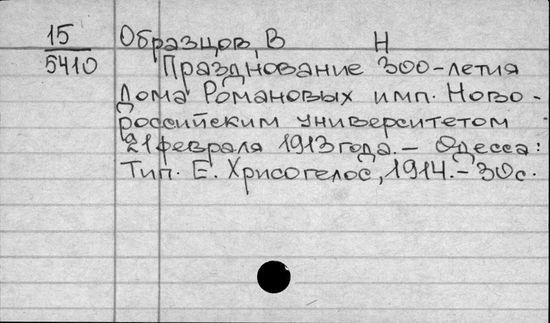 15 Образцов, В Н
5410 Празднование 300-летия
Дома Романовых имп. Ново-
российским университетом
21 февраля 1913 года. – Одесса:
Тип. Е. Хрисогелос, 1914. – 30 с.